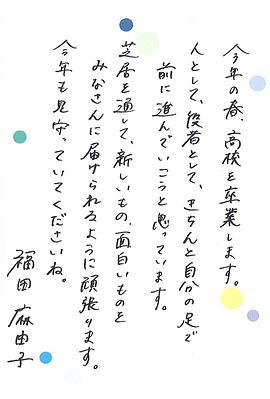 今年の春、高校を卒業します。
人として、役者として、きちんと自分の足で
前に進んでいこうと思っています。
芝居を通して、新しいもの、面白いものを
みなさんに届けられるように頑張ります。
今年も見守っていてくださいね。
福田 麻由子